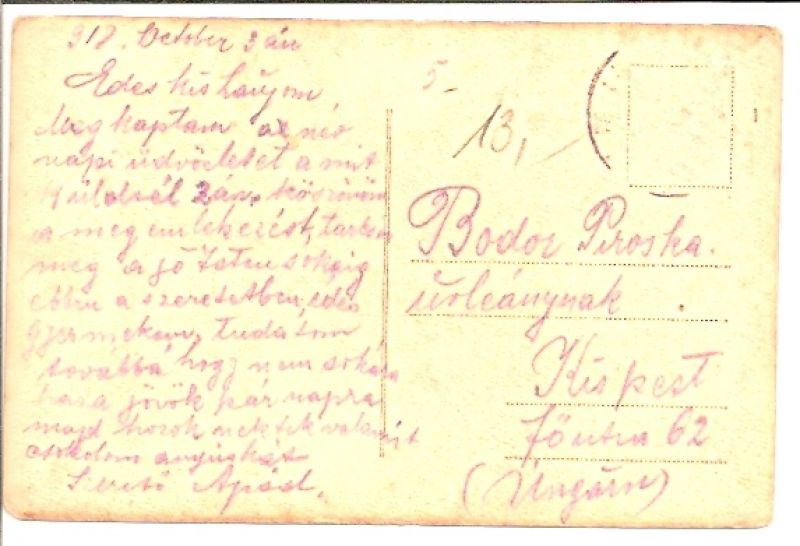 918. October 3án
Edes kis Lányom
Megkaptam a név
napi üdvözletet a mit
küldtél 3án. köszönöm
a meg emlekezést, tartson
meg a jó Isten sokáig
ebbe a szeretetben, edes
gyermekem, tudatom
továbbá, hogy nem soká
haza jövök pár napra
majd hozok nektek valamit
csokolom anyúkát
Szerető Apád.
5-
13,-
Bodor Piroska.
úrleánynak
Kispest
főútca 62
(Üngárn)